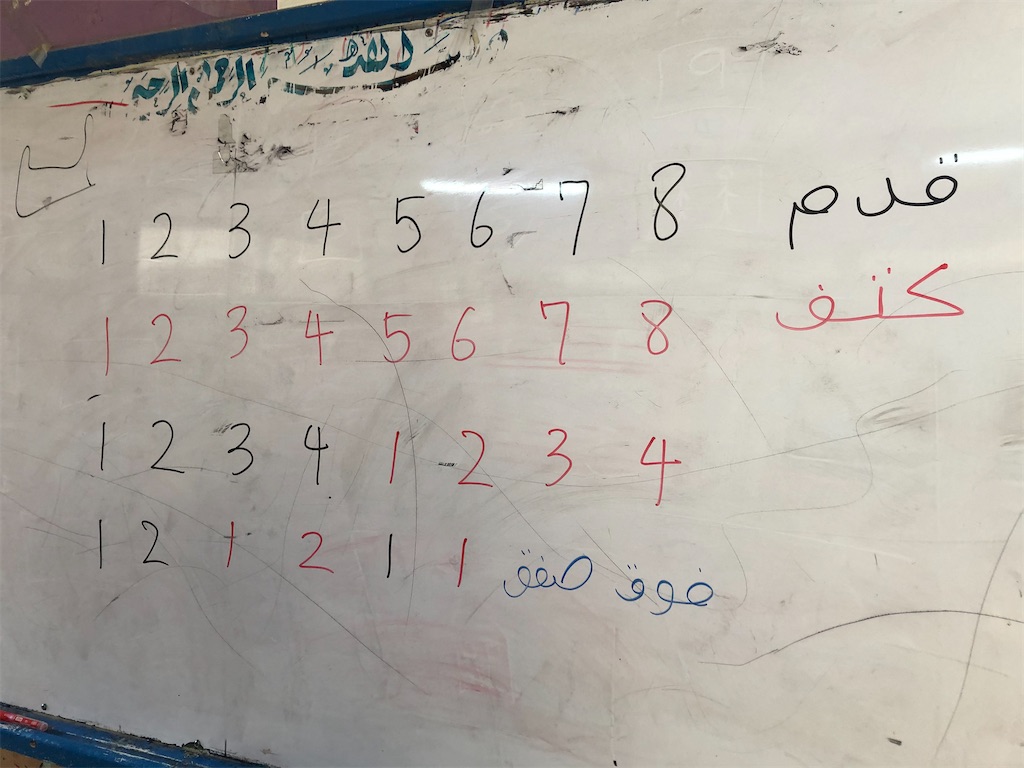 1 2 3 4 5 6 7 8 قدم
1 2 3 4 5 6 7 8 كتف
1 2 3 4 1 2 3 4
1 2 1 2 1 1 صفق فوق